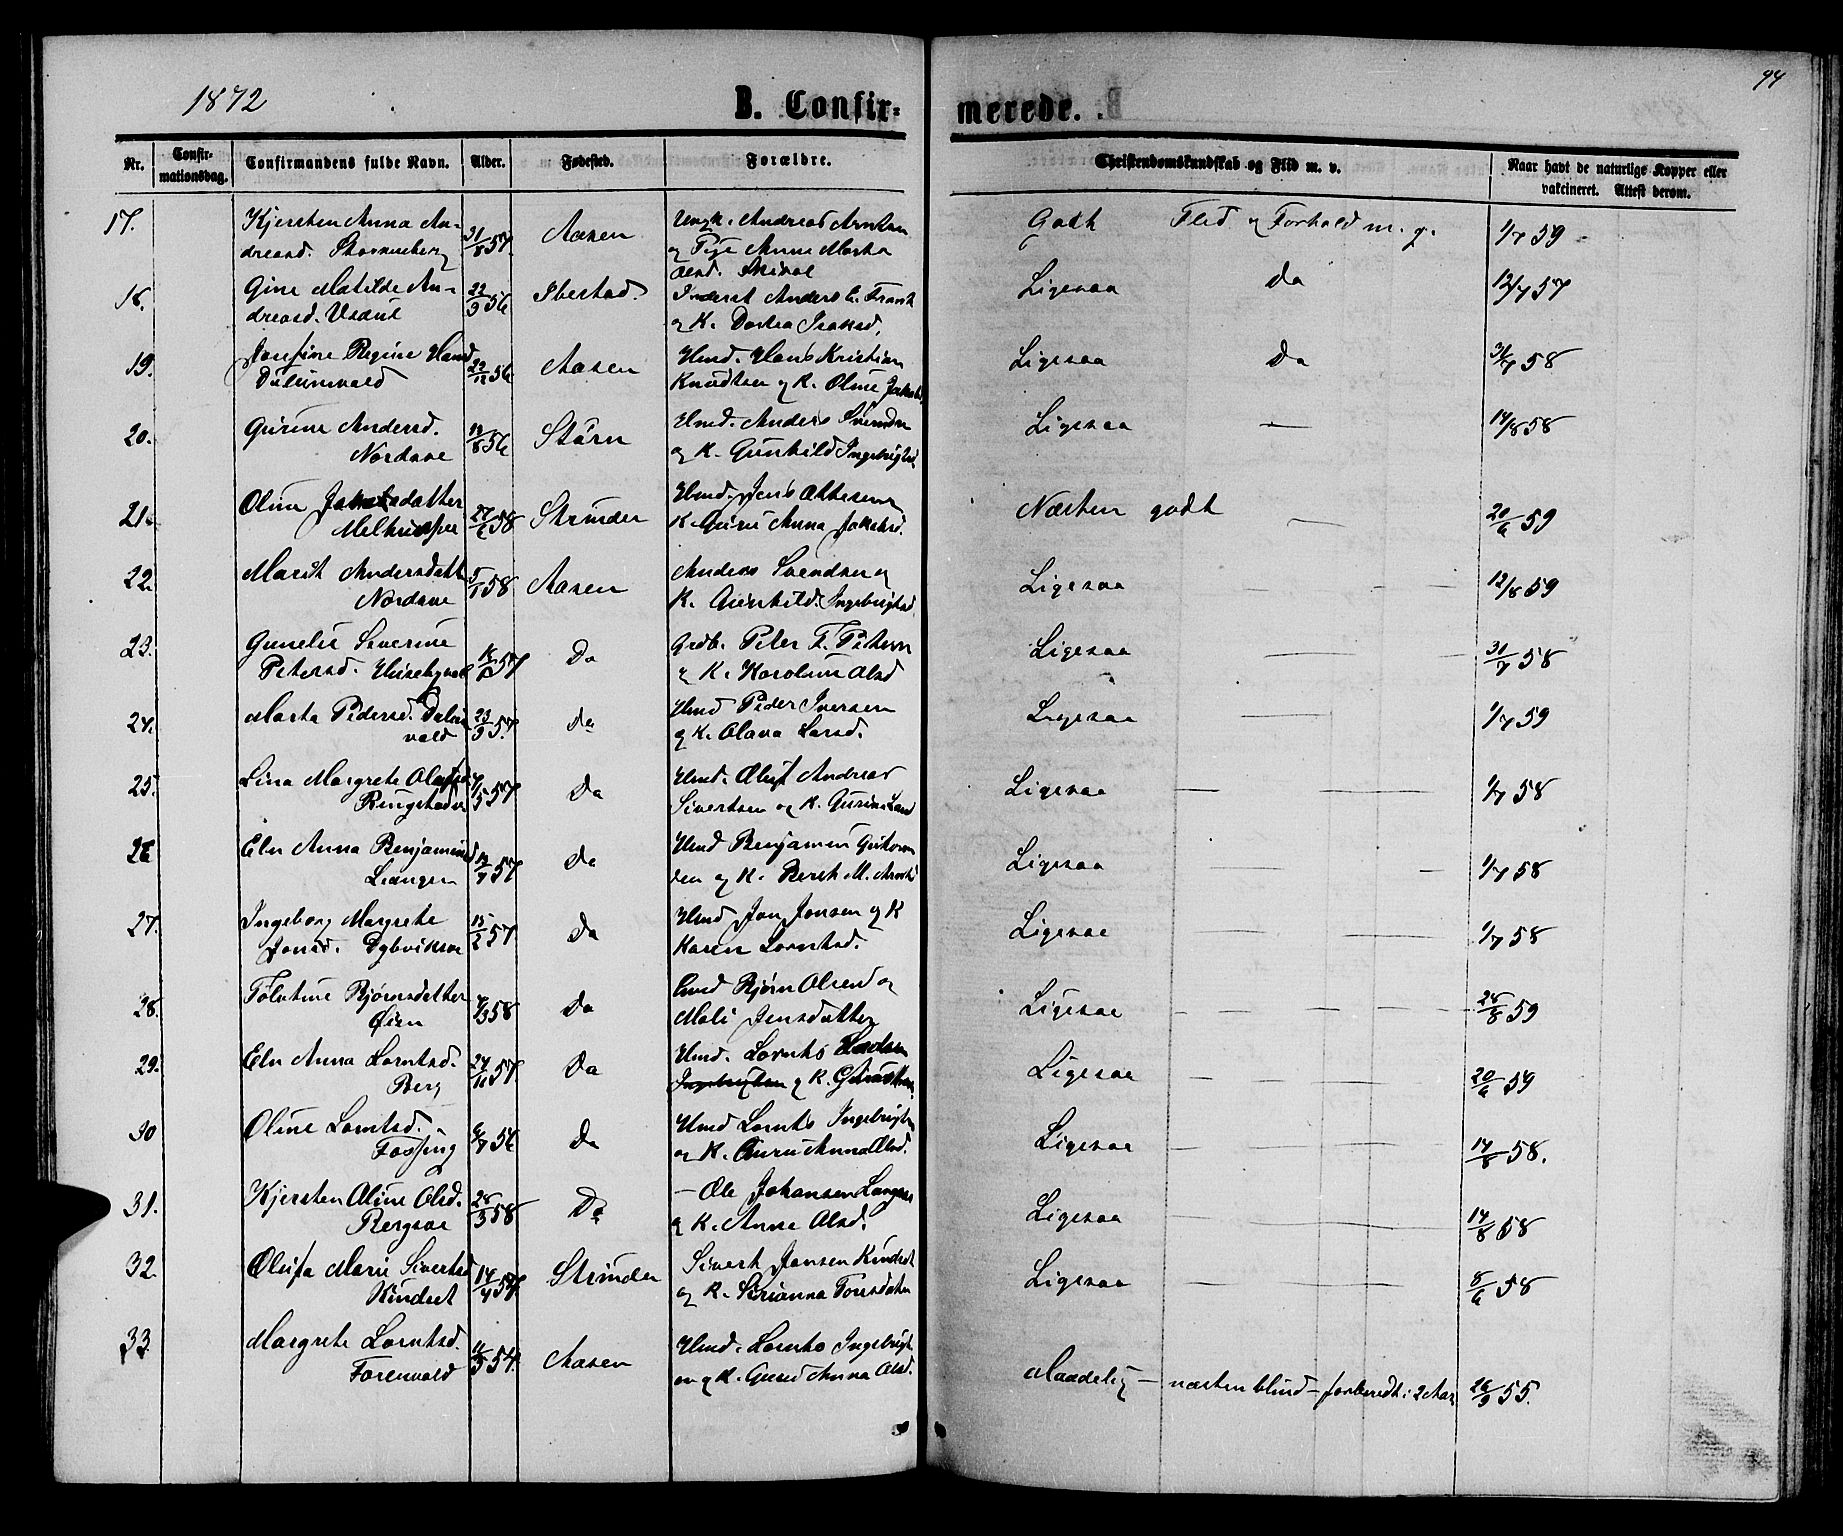 1872
B. Confir-
merede.
94
Nr.
Confir-
mationsdag.
Confirmandens fulde Navn.
Alder.
Fødested.
Forældre.
Christendomskundskab og Flid m. v.
Naar havt de naturlige Kopper eller
vakcineret. Attest derom.
17. Kjersten Anna An-
dreasd. 31/8 57. Aasen
Ungk. Andreas Arntsen
og Pige Anne Marta
Olsd.
Godt Flid og Forhold m. g. 1/7 59
18. Gine Matilde An-
dreasd. 22/9 56 Ibestad.
Inderst Anders E. Frank
og K. Dortea Isaksd.
Ligesaa Do 12/7 57
19. Josefine Regine Hansd
22/12 56 Aasen
Hmd. Hans Kristian
Knudtsen og K. Oline
Ligesaa Do 58
20. Gurine Andersd.
Nordaae 56 Støren
Hmd. Anders Svendsen
og K. Gunhild Ingebrigtsd.
Ligesaa — 14/8 58
21. Oline Jakobsdatter
27/6 58 Strinden
Hmd. Jens Ottesen
K. Guru Anna Jakobsd.
Næsten godt — 20/6 59
22. Marit Andersdatt
Nordaae 5/1 58 Aasen
Anders Svendsen og
K. Gunhild Ingebrigtsd.
Ligesaa — — — 12/8 59
23. Gunelie Severine
Petersd. 57 Do
Grdb. Peter F. Petersen
og K. Karoline Olsd
Ligesaa — — 31/7 58
24. Marta Pedersd.
vald 23/9 57. Do
Hmd Peder Iversen
og K. Olava Larsd.
Ligesaa — 1/7 59
25. Lina Margrete
57 Do
Hmd. Oluf Andreas
Sivertsen og K.
Ligesaa — — 1/7 58
26 Eln Anna Benjaminsd
Leangen 57 Do
Hmd Benjamin
og K. Beret M.
Ligesaa — — — 1/7 58
27. Ingeborg Margrete
Jonsd. 15/2 57 Do
Hmd Jon Jonsen og K
Karen Lorntsd.
Ligesaa — — — 1/7 58
28. Bjørnsdatter
Øien 58 Do
Bjørn Olsen og
Mali Jensdatter
Ligesaa — — — — 28/8 59
29. Eln Anna Lorntsd.
Berg 24/11 57. Do
Hmd. Lornts
og K.
Ligesaa — — — 20/6 59
30 Oline Lorntsd.
56 Do
Hmd Lornts Ingebrigtsen
og K. Guru Anna Olsd.
Ligesaa — — — 14/8 58.
31. Kjersten Oline Olsd.
Bergsaae 28/3 58 Do
— Ole Johansen
og K. Anne Olsd.
Ligesaa — — 14/8 58
32. Olufa Marie Sivertsd
Kindset 14/4 57 Strinden
Sivert Jonsen Kindset
og K.
Ligesaa — — 8/6 58
33. Margrete Lorntsd.
Forenvald 54. Aasen
Hmd. Lornts Ingebrigt-
en og K. Anna Olsd.
Maadelig — næsten blind — forberedt i 2 Aar 26/9 55.